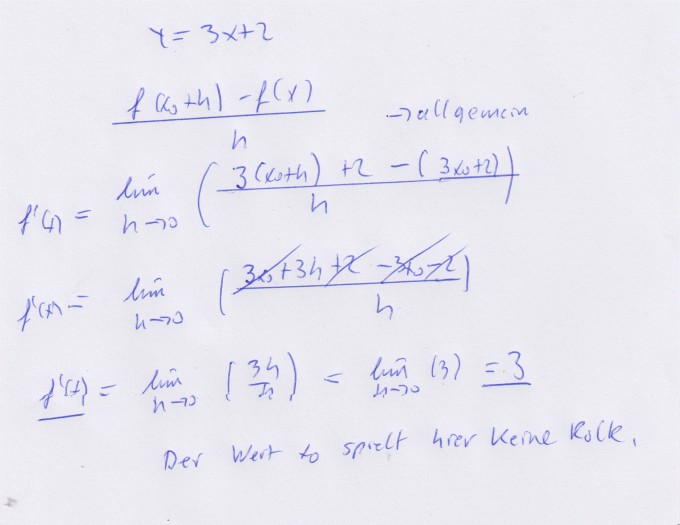 y = 3x+2
f(x₀+h) - f(x) / h → allgemein
f'(x) = lim h→0 ( (3(x₀+h) +2 - (3x₀+2)) / h )
f'(x) = lim h→0 ( (3x₀+3h+2 -3x₀-2) / h )
f'(x) = lim h→0 ( 3h/h ) = lim h→0 (3) = 3
Der Wert x₀ spielt hier keine Rolle.